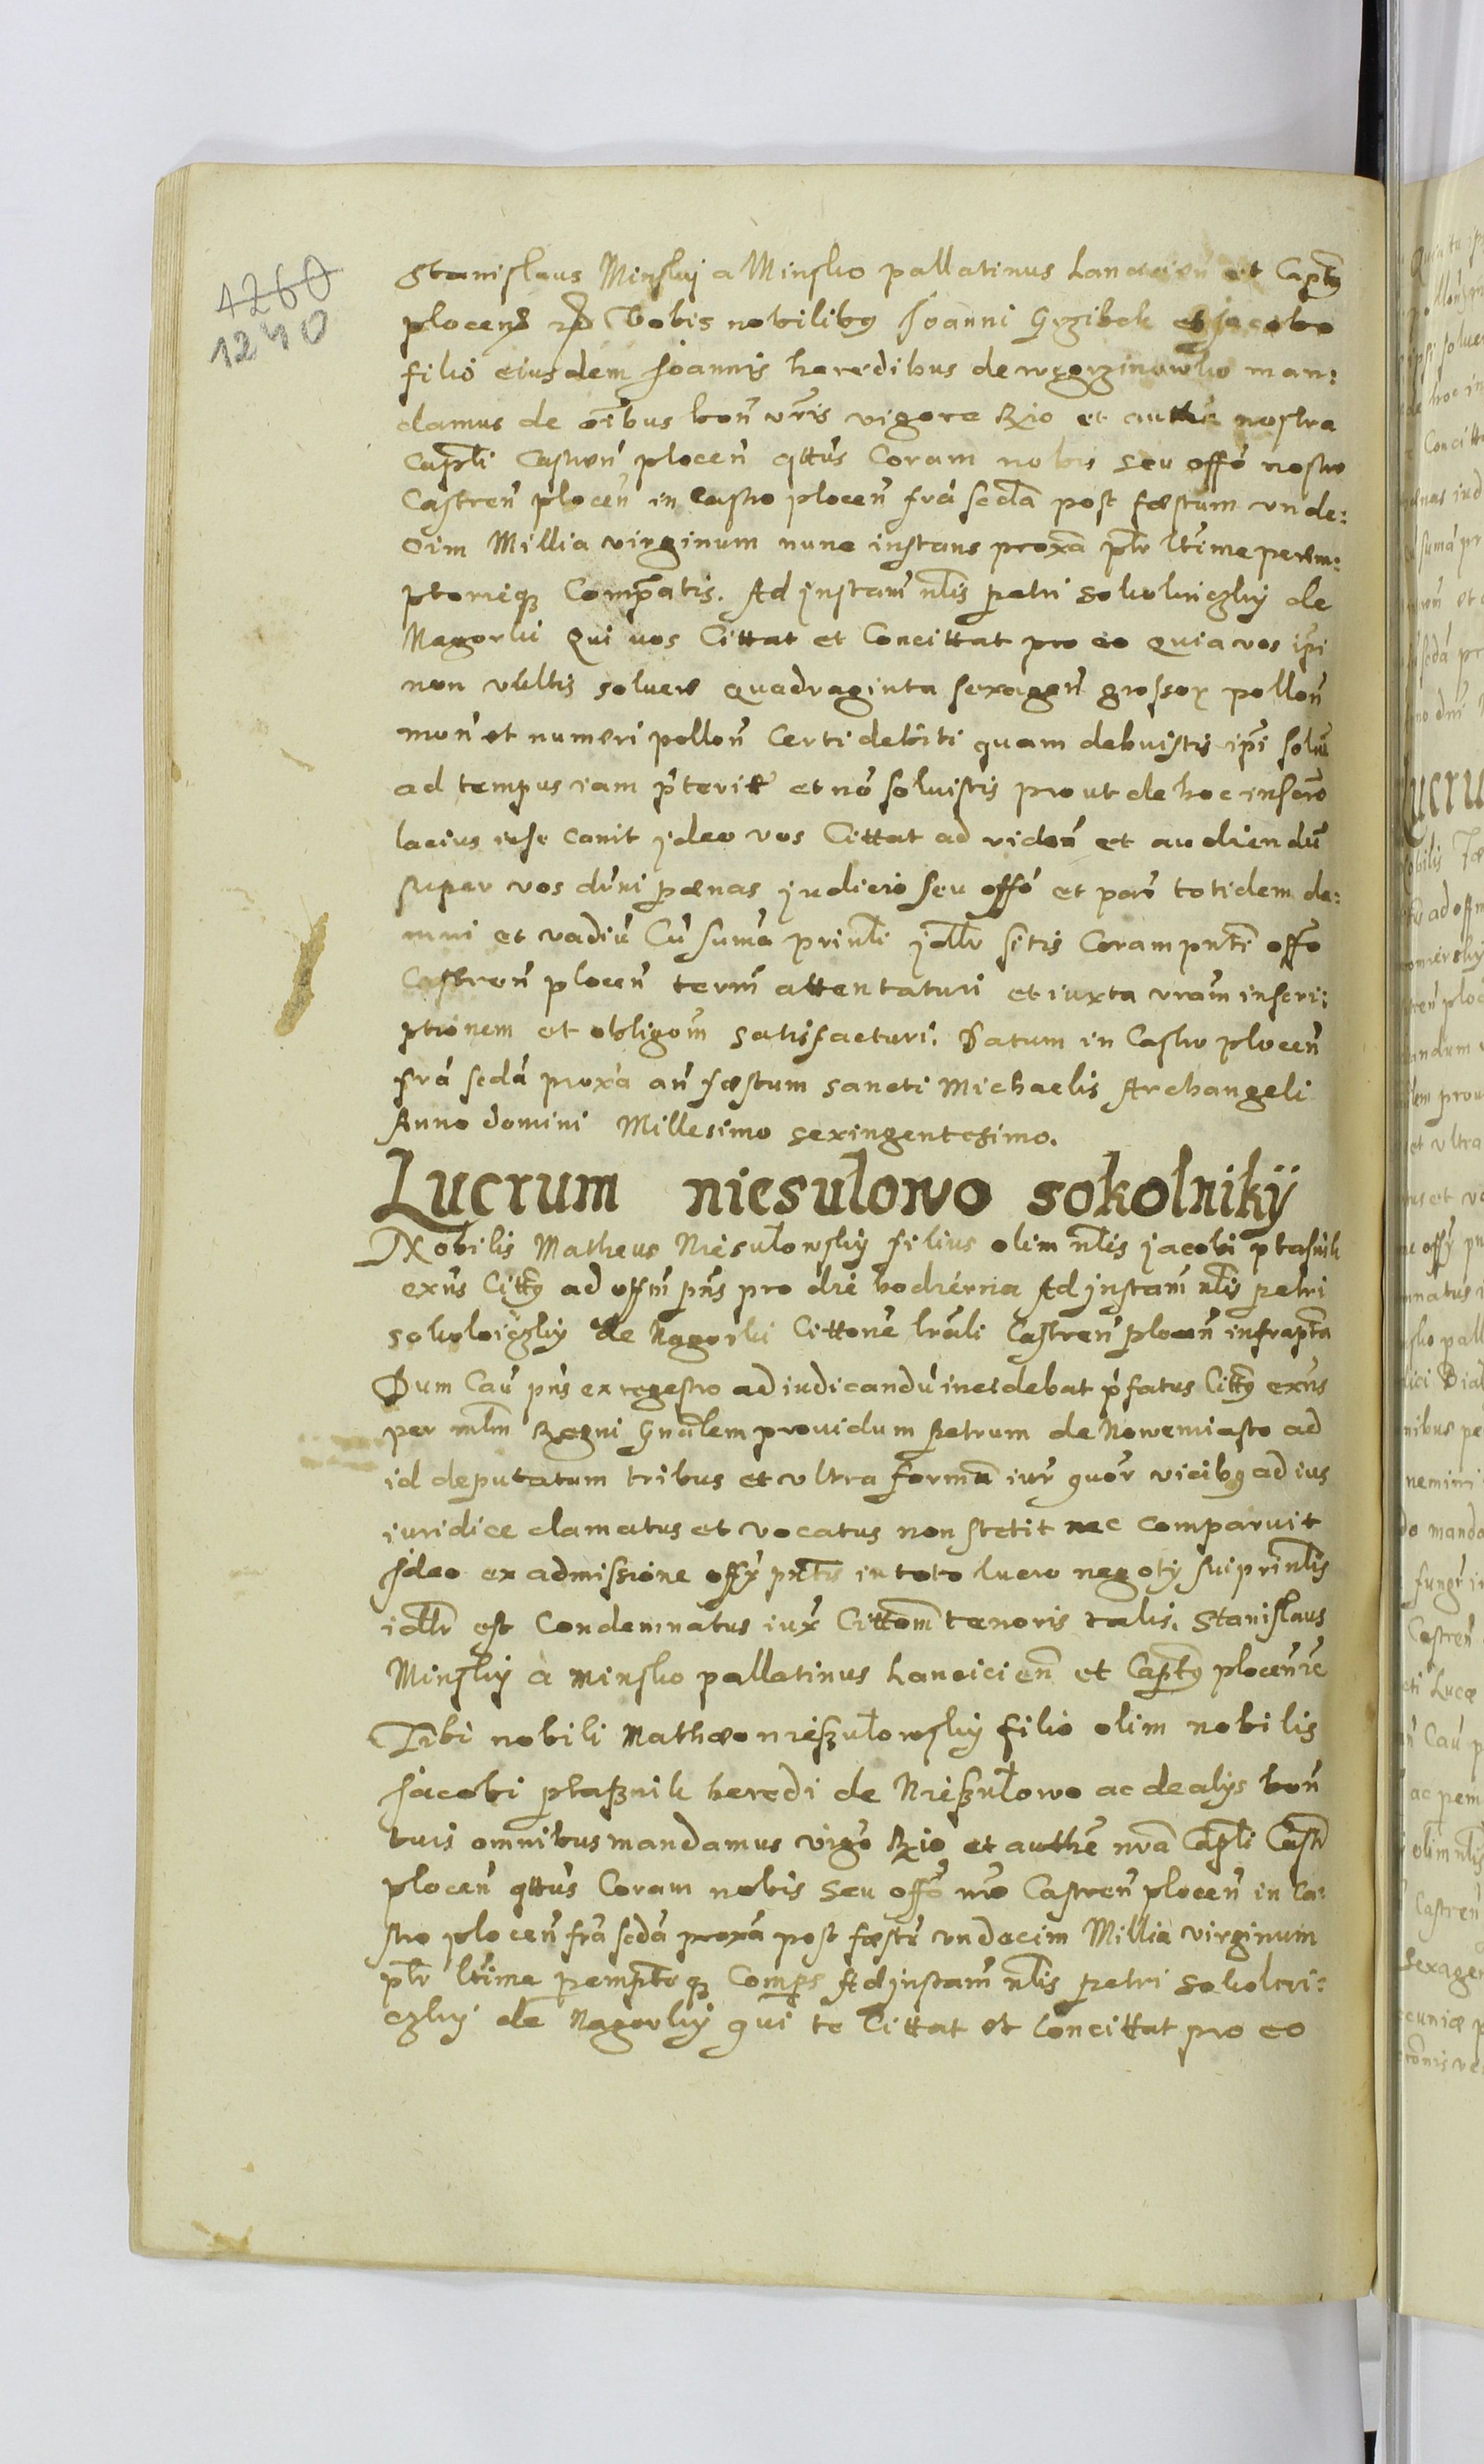 4260
1240
Stanislaus Minsky a Minsko pallatinus Lancicień et Capts
ploceń Vobis nobilibus Joanni Grzibek et Jacobo
filio eiusdem Joannis heredibus de węgrzinowko man:
damus de oibus bon vris vigore Rio et authe nostra
Capli Castren plocen qttus Coram nobis seu offo nostro
Castren plocen in Castro plocen fra scda post fæstum vnde:
cim Millia virginum nunc instans proxa ptr ltime perem:
ptorieq Compatis. Ad instam nlis petri sokolniczky de
Nagorki Qui vos Cittat et Concittat pro eo Quia vos ipi
non vultis soluere quadraginta sexagen grossor pollon
mon et numeri pollon Certi debiti quam debuistis ipi solu
ad tempus iam pteritt et no soluistis prout de hoc inscro
lacius in se conit jdeo vos Cittat ad viden et audiendu
super vos dni pænas judicio seu offo et par totidem da:
mni et vadiu Cu suma prinli jdtr sitis Coram pnti offo
Castren plocen term attentaturi et iuxta vram inscri:
ptionem et obligom satisfacturi. Datum in Castro plocen
fra scda proxa an fæstum sancti Michaelis Archangeli
Anno domini Millesimo sexingentesimo.
Lucrum niesulowo sokolnikÿ
Nobilis Matheus Niesułowsky filius olim nlis jacobi ptasnik
exns Citts ad offm pns pro die hodierna Ad jnstam nlis petri
sokolniczky de Nagorki Cittone lrali Castren plocen infrapta
Dum Cau pns ex regestro ad iudicandu incidebat pfatus Citts exns
per mlm Regni Gnalem prouidum petrum de Nowemiasto ad
id deputatum tribus et vltra forma iur quor vicibus ad ius
iuridice clamatus et vocatus non stetit nec comparuit
jdeo ex admissione offy pntis in toto lucro negoty sui prinlis
idtr est Condemnatus iux Cittom tenoris talis. Stanislaus
Minsky à minsko pallatinus Lancicien et Capts plocen re
Tibi nobili Mathæo nieszułowsky filio olim nobilis
Jacobi ptasznik heredi de Nieszułowo ac de alys bon
tuis omnibus mandamus vigo Rio et authe nra Capli Castr
plocen qttus Coram nobis seu offo nro Castren plocen in Ca:
stro plocen fra scda proxa post fæstu vndecim Millia virginum
ptr ltime pemptoq Comprs Ad jnstam nlis petri sokolni:
czky de Nagorky qui te Cittat et Concittat pro eo